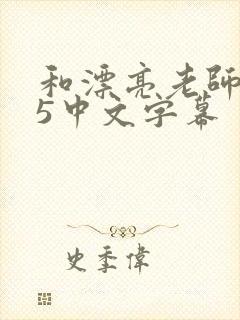 和漂亮老師
5中文字幕
史季偉